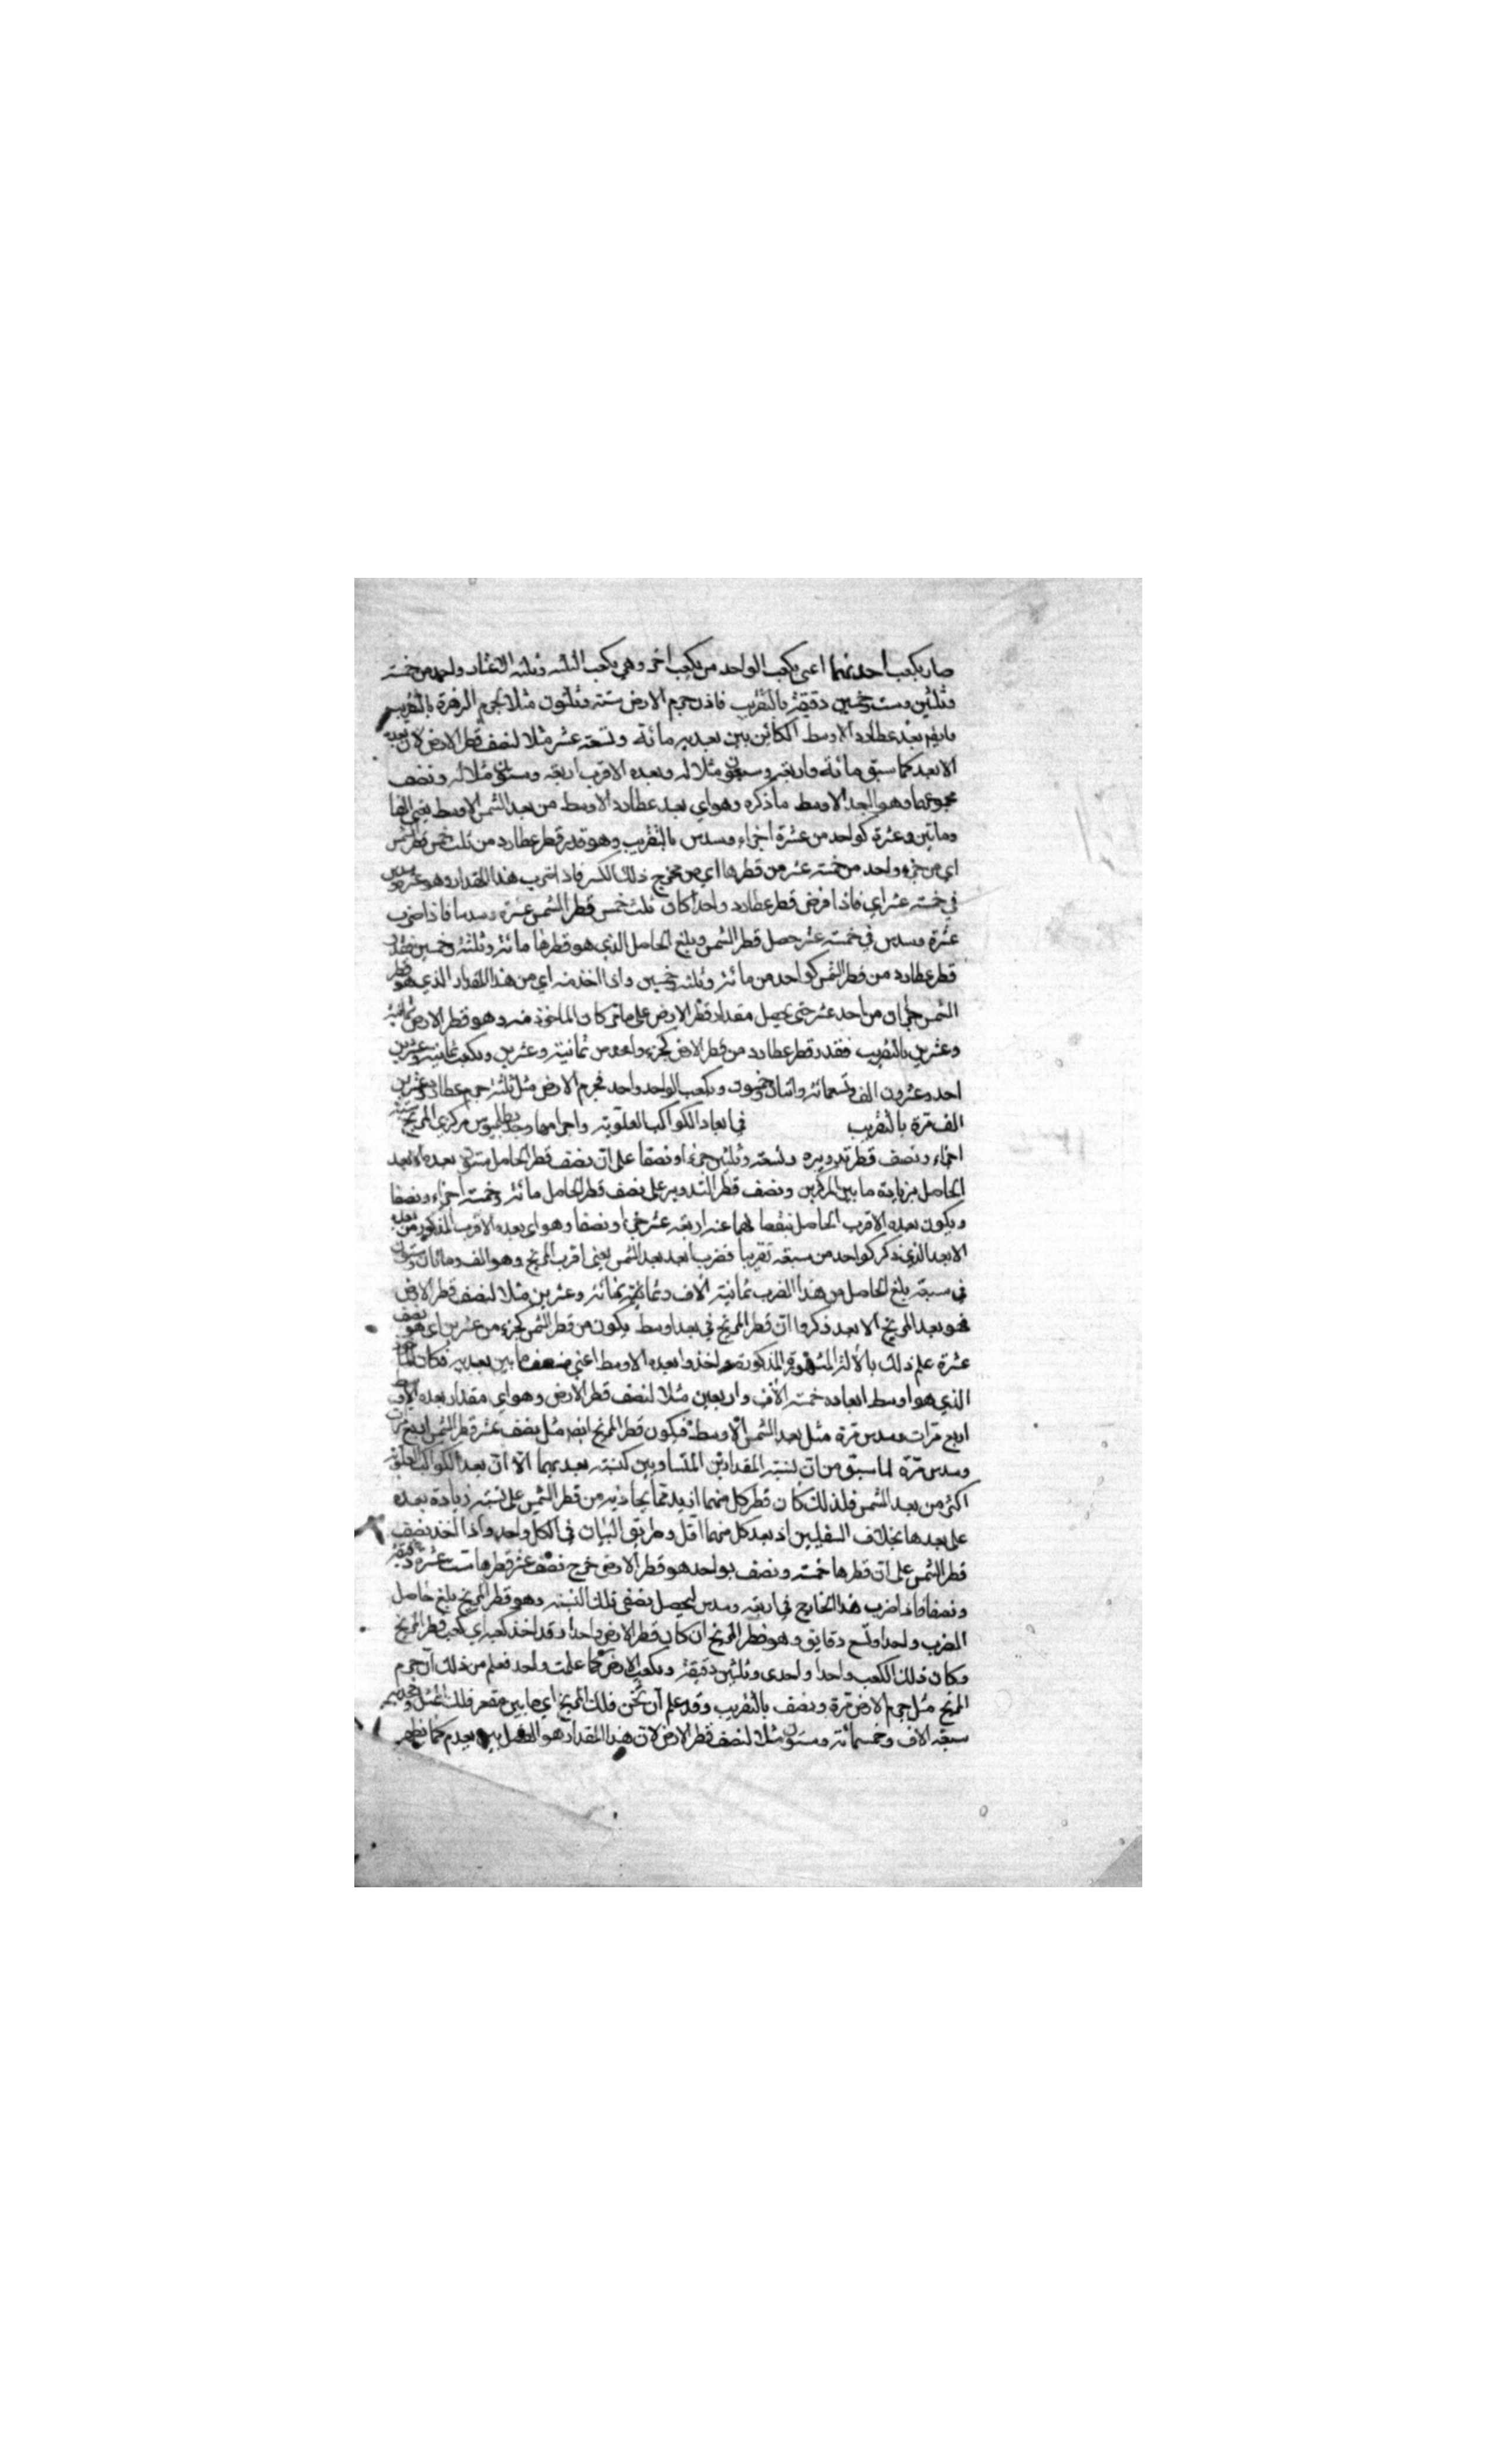 صار مكعب احدهما اعني مكعب الواحد من مكعب الاخر وهي مكعب الثلثة وثلثه الثمان واحد من خمسة
وثلثين وست وخمسين دقيقة بالتقريب فاذن جرم الارض ستة وثلثون مثلا لجرم الزهرة بالتقريب
بعد عطارد الاوسط الكائن بين بعديه مائة وتسعة عشر مثلا لنصف قطر الارض لان بعده
الابعد كما سبق مائة واربعة وسبعون مثلا له وبعده الاقرب اربعة وستون مثلا له ونصف
مجموعهما وهو البعد الاوسط ما ذكره وهو اي بعد عطارد الاوسط من بعد الشمس الاوسط يعني الفا
وماتين وعشرة كواحد من عشرة اجزاء وسدس بالتقريب وهو قدر قطر عطارد من ثلث خمس قطر الشمس
اي من جزء واحد من خمسة عشر من قطرها اي من مخرج ذلك الكسر فاذا ضرب هذا المقدار وهو عشرة وسدس
في خمسة عشر اي فاذا فرض قطر عطارد واحدا كان ثلث خمس قطر الشمس عشرة وسدسا فاذا ضرب
عشرة وسدس في خمسة عشر حصل قطر الشمس وبلغ الحاصل الذي هو قطرها مائة وثلثة وخمسين فقدر
قطر عطارد من قطر الشمس كواحد من مائة وثلثة وخمسين واذا اخذ منه اي من هذا المقدار الذي هو قطر
الشمس جزآن من احد عشر حتى يحصل مقدار قطر الارض على ما مر كان الماخوذ منه وهو قطر الارض ثمانية
وعشرين بالتقريب فقدر قطر عطارد من قطر الارض كجزء واحد من ثمانية وعشرين ومكعب ثمانية وعشرين
احد وعشرون الف وتسعمائة واثنان وخمسون ومكعب الواحد واحد فجرم الارض مثل ثلثة جرم عطارد وعشرين
الف مرة بالتقريب في ابعاد الكواكب العلوية واجرامها وجد بطلميوس مركزي المريخ ستة
اجزاء ونصف قطر تدويره وتسعة وثلثين جزءا ونصفا على ان نصف قطر الحامل ستون بعده الابعد
الحاصل بزيادة ما بين المركزين ونصف قطر التدوير على نصف قطر الحامل مائة وخمسة اجزاء ونصفا
ويكون بعده الاقرب الحاصل بنقصانهما عنه اربعة عشر جزءا ونصفا وهو اي بعده الاقرب المذكور من بعده
الابعد الذي ذكر كواحد من سبعة تقريبا فضرب ابعد بعد الشمس يعني اقرب المريخ وهو الف ومائتان وستون
في سبعة بلغ الحاصل من هذا الضرب ثمانية الاف وثمانمائة وعشرين مثلا لنصف قطر الارض
فهو بعد المريخ الابعد ذكروا ان قطر المريخ في بعد اوسط يكون من قطر الشمس كجزء من عشرين اي هو نصف
عشره علم ذلك بالالة المشهورة المذكورة واخذوا بعده الاوسط اعني نصف ما بين بعديه فكان
الذي هو اوسط ابعاده خمسة الاف واربعين مثلا لنصف قطر الارض وهو اي مقدار بعده الاوسط
اربع مرات وسدس مرة مثل بعد الشمس الاوسط فيكون قطر المريخ ايضا مثل نصف عشر قطر الشمس اربع مرات
وسدس مرة لما سبق من ان نسبة المقدارين المتساويين كنسبة بعديهما الا ان بعد الكواكب العلوية
اكثر من بعد الشمس فلذلك كان قطر كل منهما ازيد مما يحاذيه من قطر الشمس على نسبة زيادة بعده
على بعدها بخلاف السفليين اذ بعد كل منهما اقل وطريق البيان في الكل واحد واذا اخذ نصف
قطر الشمس على ان قطرها خمسة ونصف بواحد هو قطر الارض خرج نصف عشر قطرها ست عشرة دقيقة
ونصفا فاذا ضرب هذا الخارج في اربعة وسدس ليحصل بمقتضى تلك النسبة وهو قطر المريخ بلغ حاصل
الضرب واحدا وتسع دقايق وهو قطر المريخ ان كان قطر الارض واحدا وقد اخذ كعبه اي كعب قطر المريخ
وكان ذلك الكعب واحدا واحدى وثلثين دقيقة ومكعب الارض كما علمت واحد فعلم من ذلك ان جرم
المريخ مثل جرم الارض مرة ونصف بالتقريب وقد علم ان ثخن فلك المريخ اي ما بين مقعر فلك الممثل ومحدبه
سبعة الاف وخمسمائة وستون مثلا لنصف قطر الارض لان هذا المقدار هو الفضل بين بعديه كما يظهر